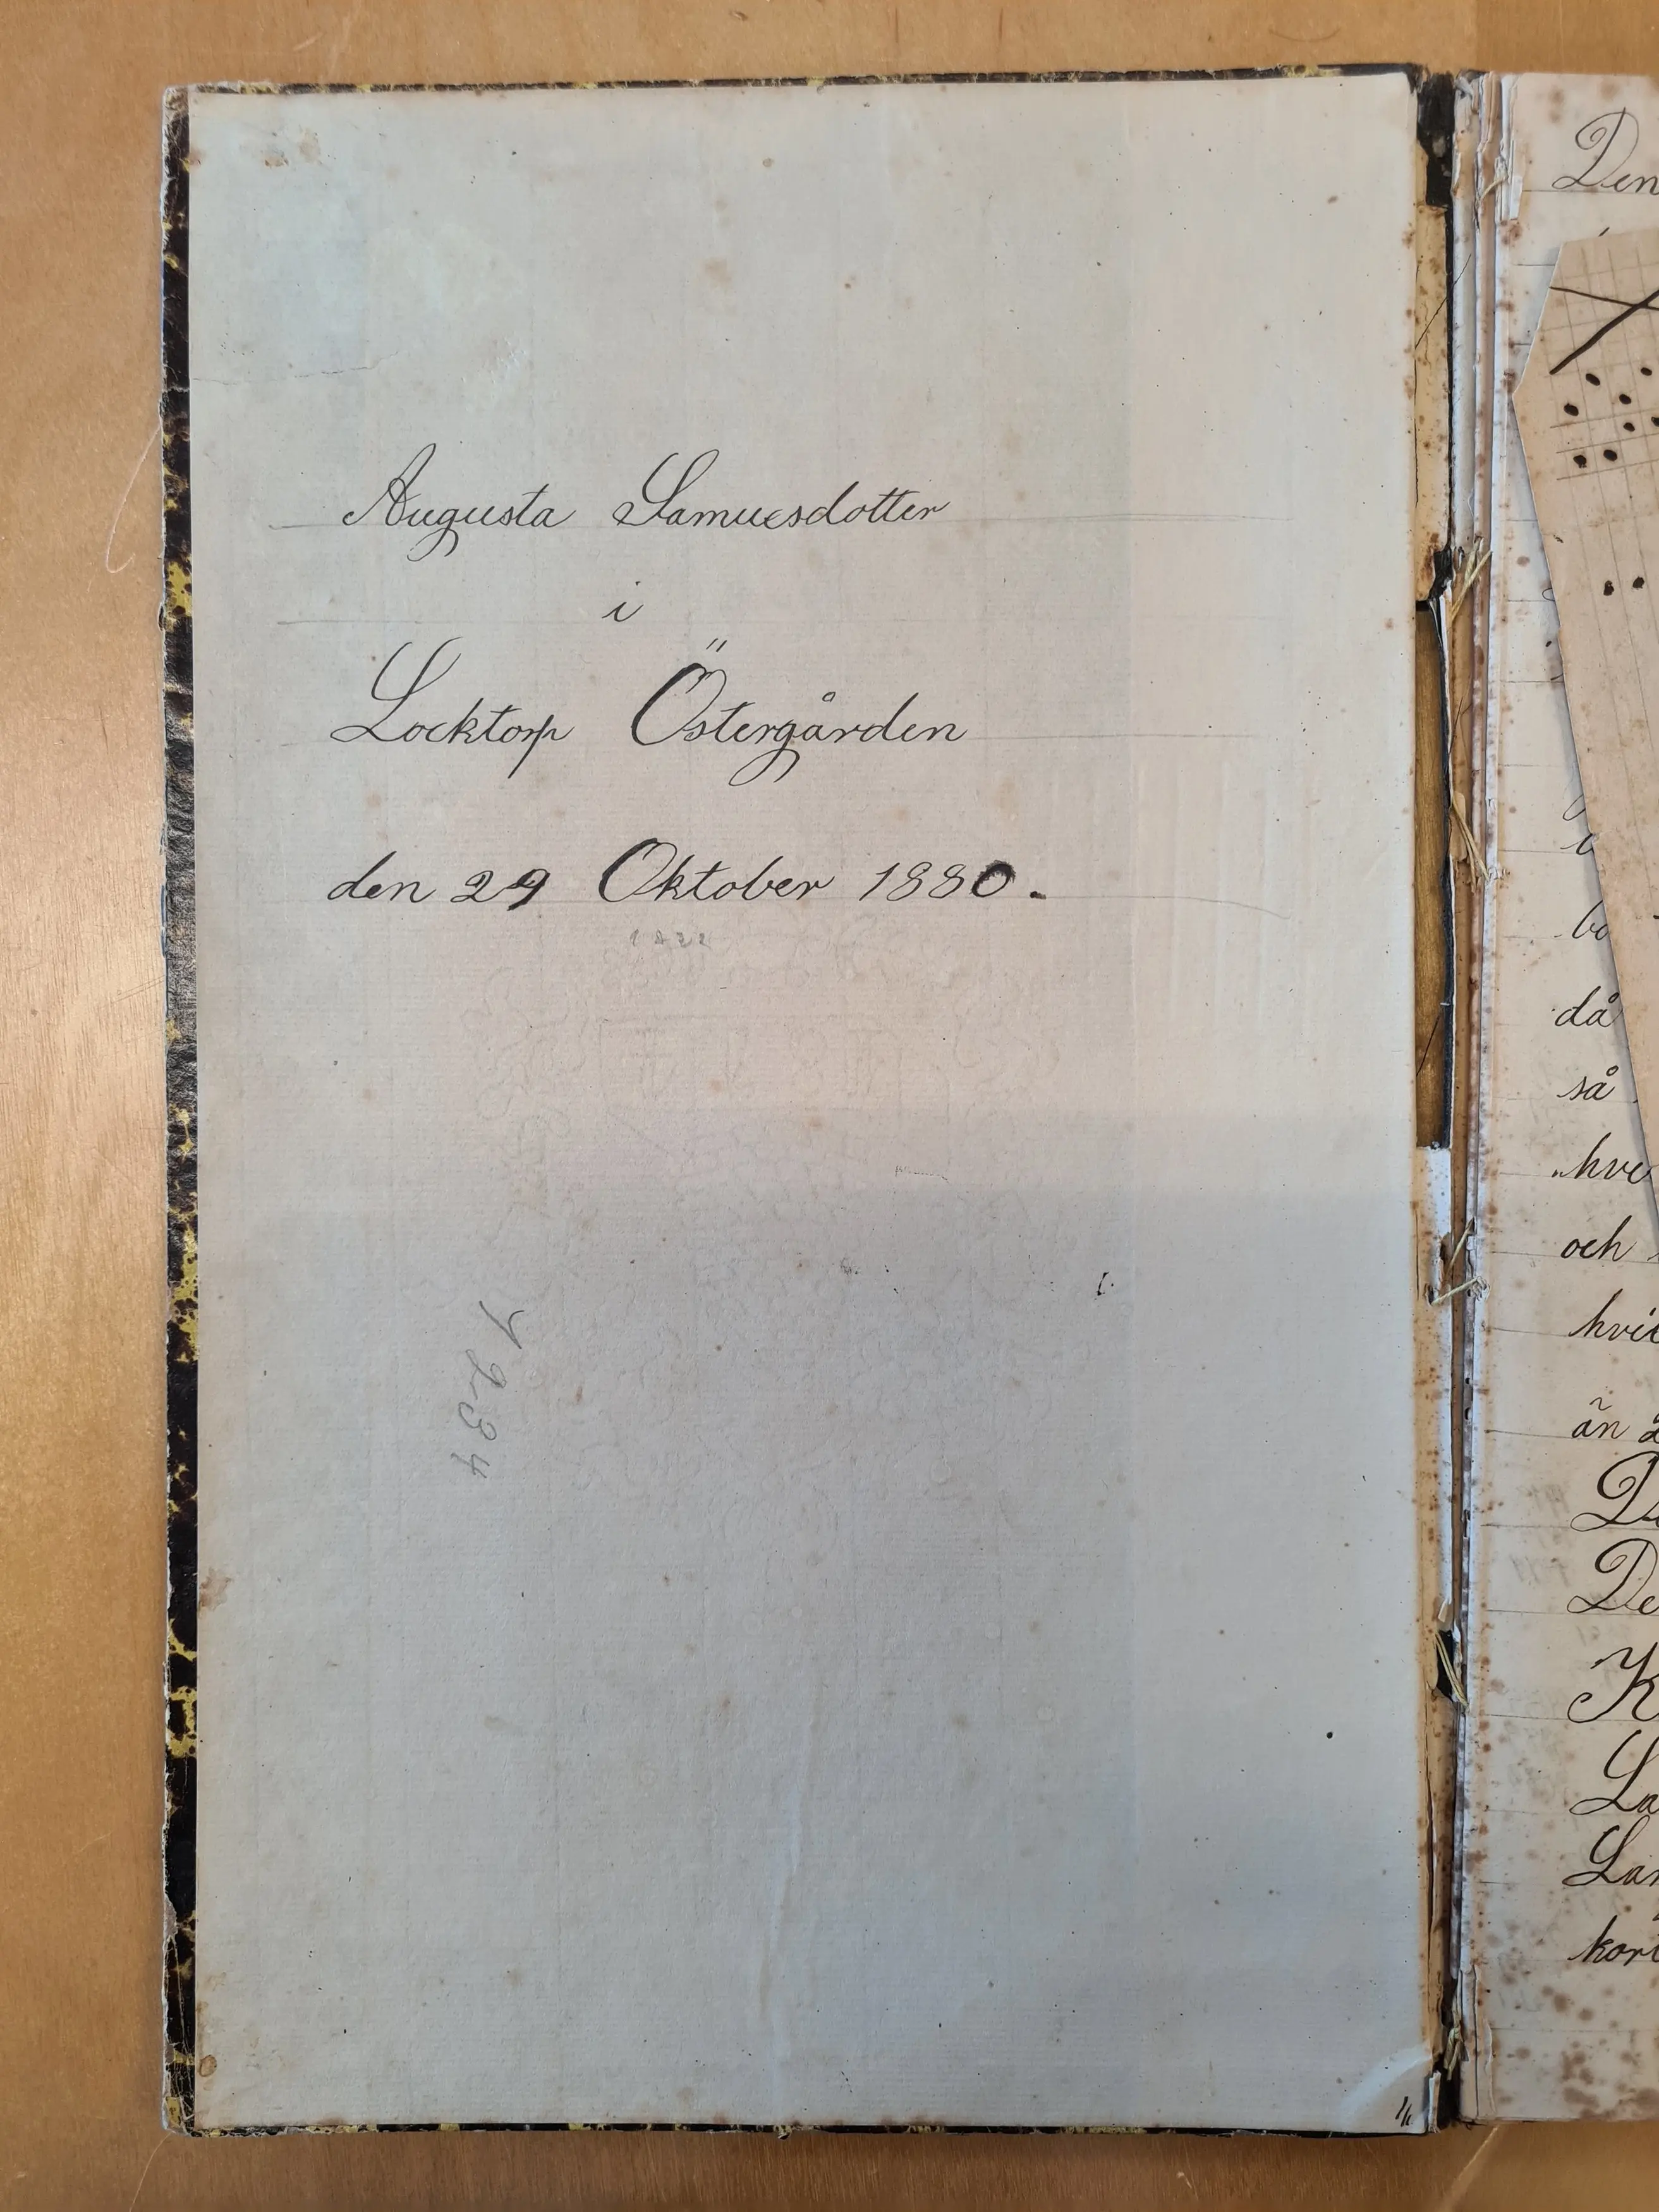 Augusta Samuesdotter
i
Locktorp Östergården
den 29 Oktober 1880.
1234
Den
då
så
hve
och
hvi
än
De
K
La
Lar
kor